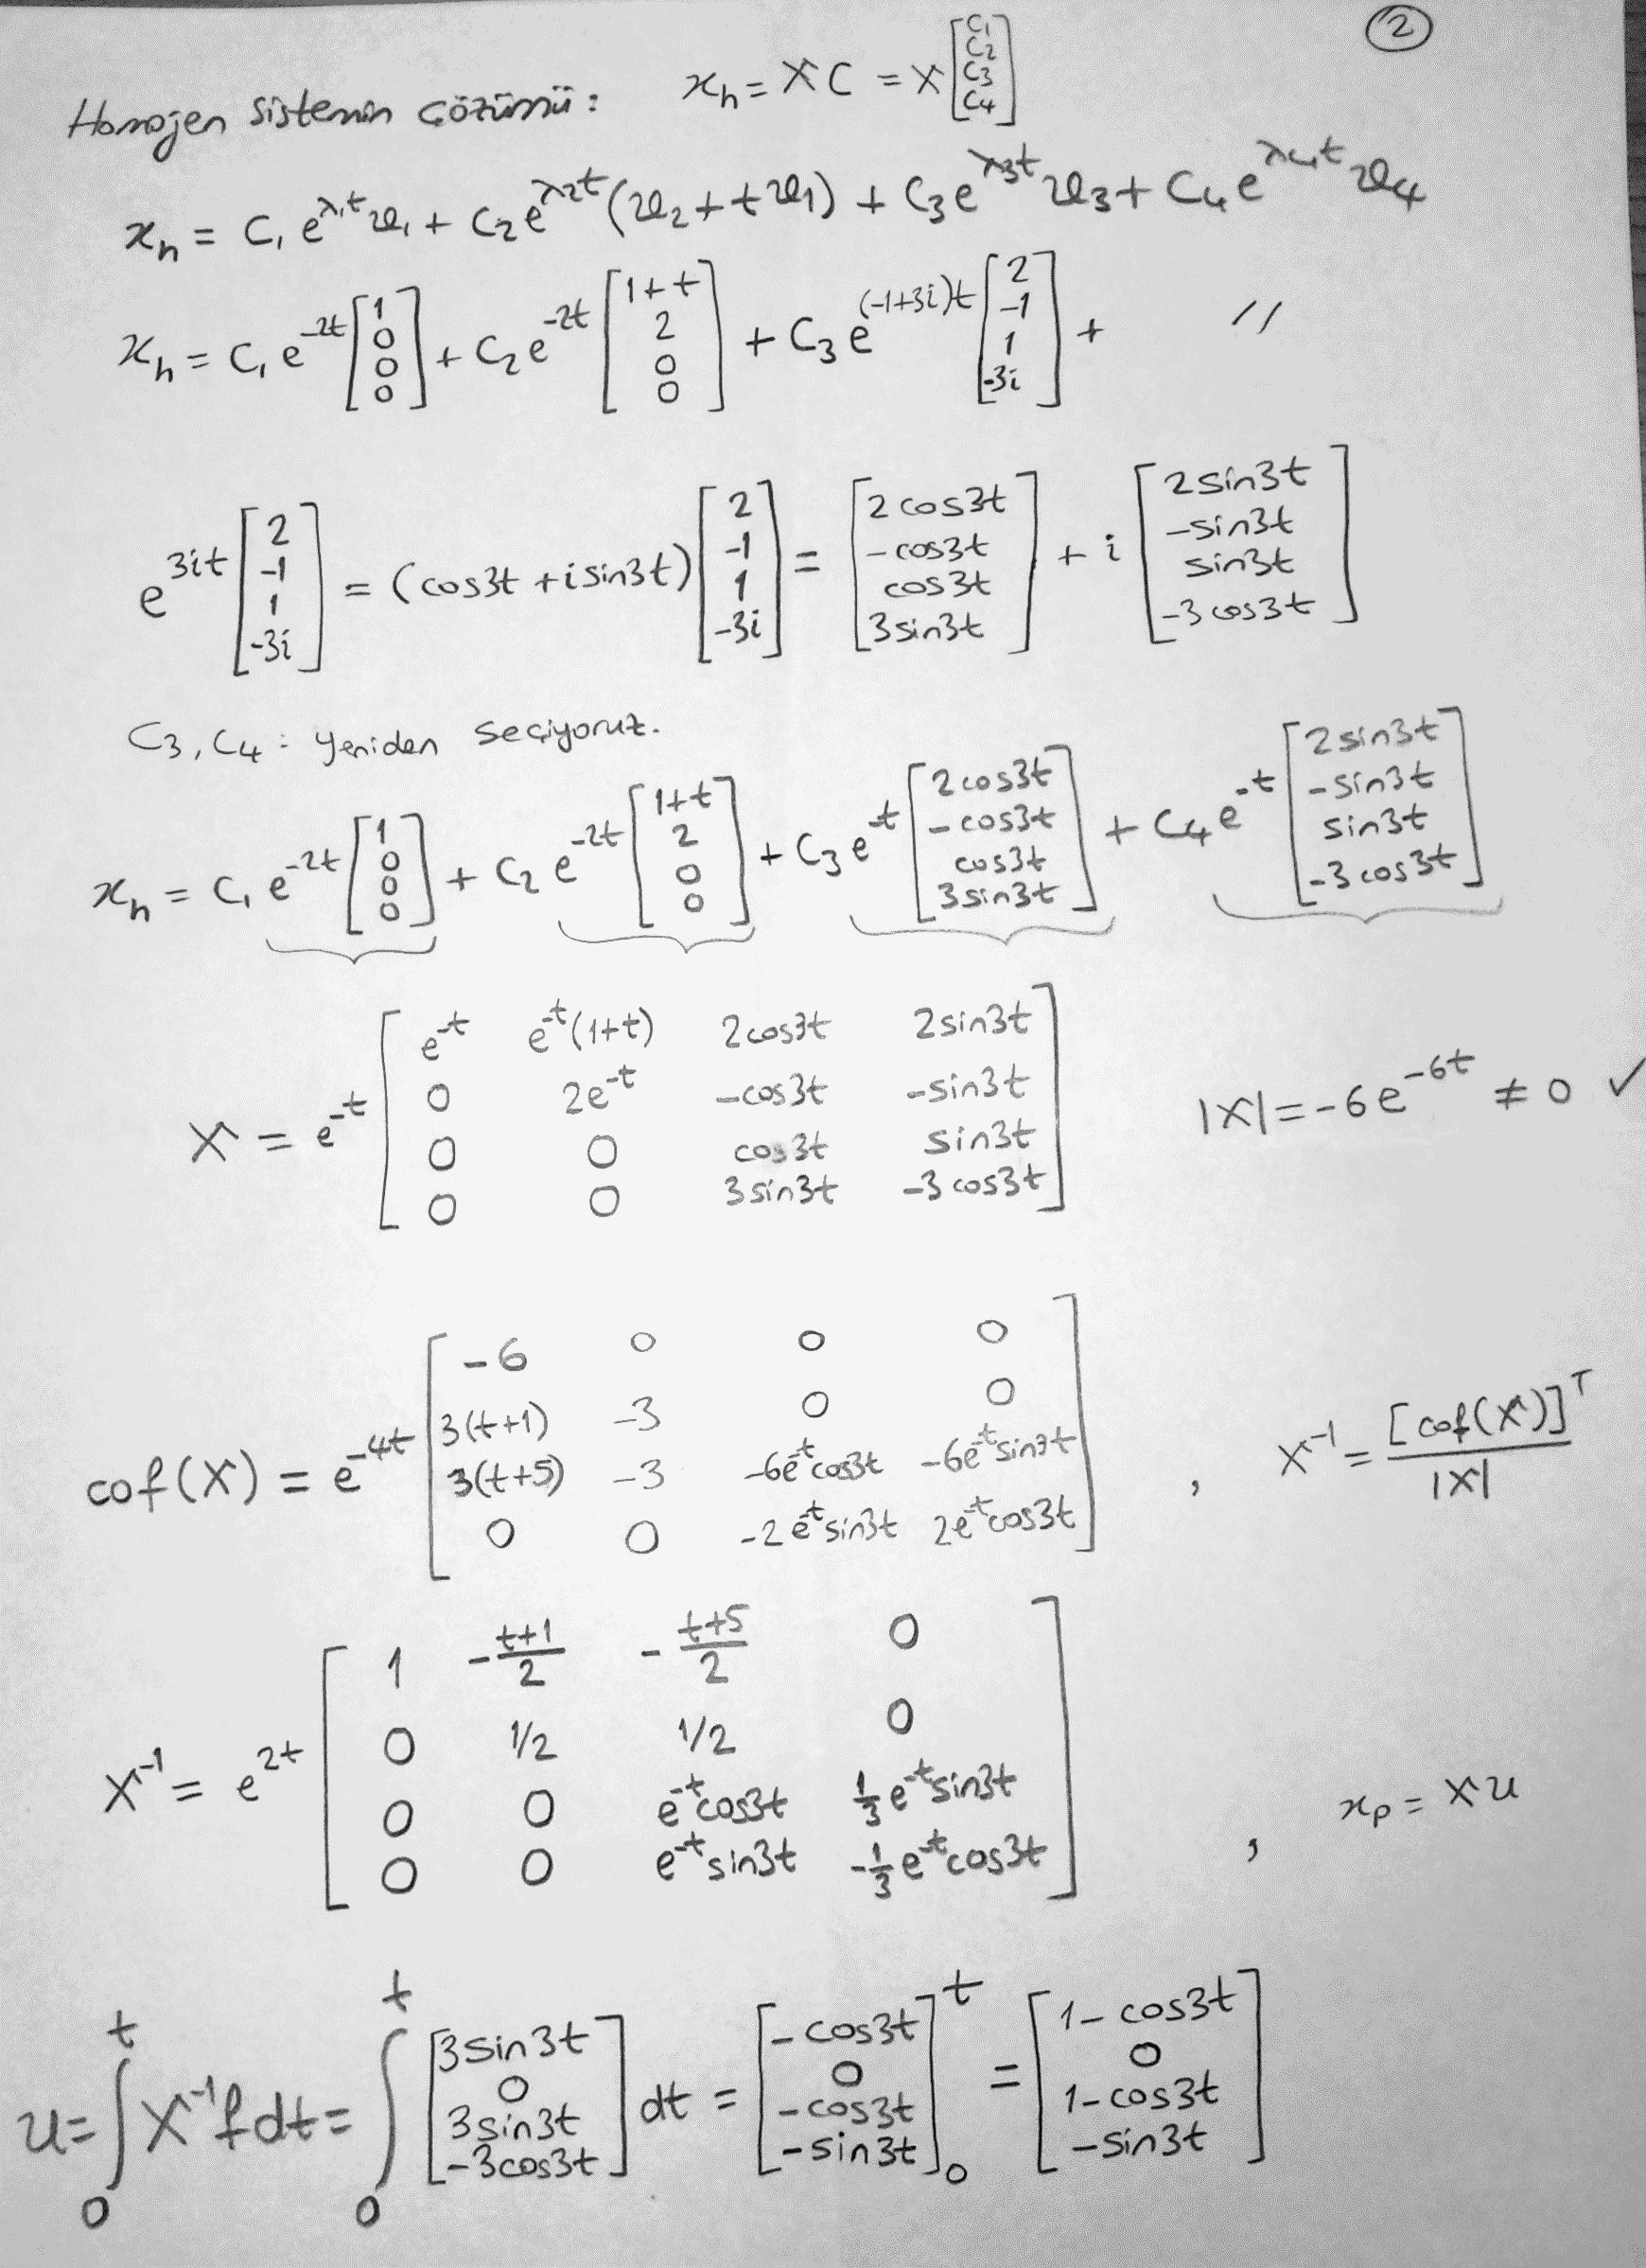 ②
Homojen sistemin çözümü: xₕ = X C = X [C₁; C₂; C₃; C₄]
xₕ = C₁ e^{λ₁t} v₁ + C₂ e^{λ₂t} (v₂ + t v₁) + C₃ e^{λ₃t} v₃ + C₄ e^{λ₄t} v₄
xₕ = C₁ e^{-2t} [1; 0; 0; 0] + C₂ e^{-2t} [1+t; 2; 0; 0] + C₃ e^{(-1+3i)t} [2; -1; 1; -3i] + //
e^{3it} [2; -1; 1; -3i] = (cos3t + i sin3t) [2; -1; 1; -3i] = [2cos3t; -cos3t; cos3t; 3sin3t] + i [2sin3t; -sin3t; sin3t; -3cos3t]
C₃, C₄ : yeniden seçiyoruz.
xₕ = C₁ e^{-2t} [1; 0; 0; 0] + C₂ e^{-2t} [1+t; 2; 0; 0] + C₃ e^{-t} [2cos3t; -cos3t; cos3t; 3sin3t] + C₄ e^{-t} [2sin3t; -sin3t; sin3t; -3cos3t]
X = e^{-t} [e^{-t}, e^{-t}(1+t), 2cos3t, 2sin3t; 0, 2e^{-t}, -cos3t, -sin3t; 0, 0, cos3t, sin3t; 0, 0, 3sin3t, -3cos3t] |X| = -6e^{-6t} ≠ 0 ✓
cof(X) = e^{-4t} [-6, 0, 0, 0; 3(t+1), -3, 0, 0; 3(t+5), -3, -6e^{-t}cos3t, -6e^{-t}sin3t; 0, 0, -2e^{-t}sin3t, 2e^{-t}cos3t] , X^{-1} = [cof(X)]^T / |X|
X^{-1} = e^{2t} [1, -(t+1)/2, -(t+5)/2, 0; 0, 1/2, 1/2, 0; 0, 0, e^{-t}cos3t, 1/3 e^{-t}sin3t; 0, 0, e^{-t}sin3t, -1/3 e^{-t}cos3t] , xₚ = X u
u = ∫₀^t X^{-1} f dt = ∫₀^t [3sin3t; 0; 3sin3t; -3cos3t] dt = [-cos3t; 0; -cos3t; -sin3t]₀^t = [1-cos3t; 0; 1-cos3t; -sin3t]